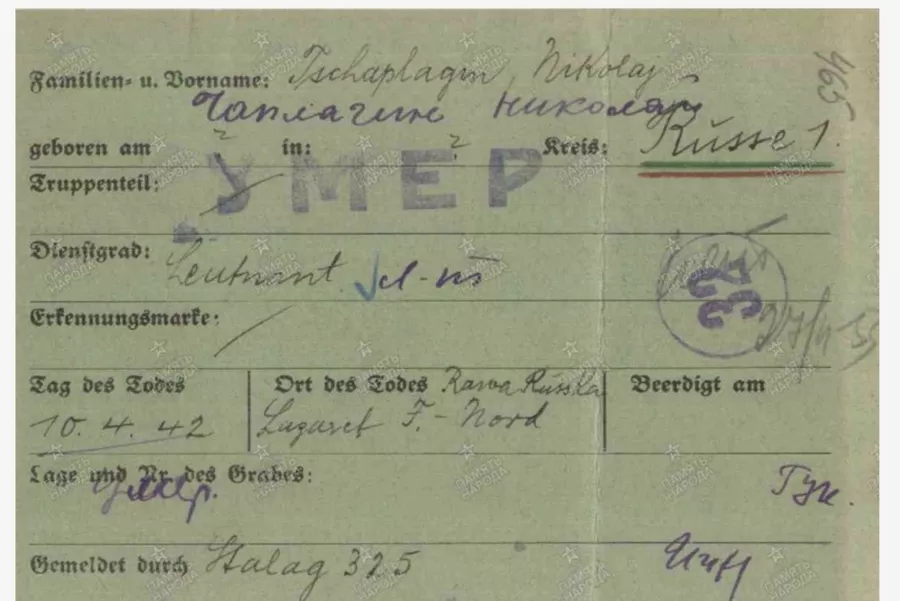 465
Familien- u. Vorname: Tschaplagin, Nikolaj
Чаплагин Николай
geboren am ? in: ? Kreis: Russe 1.
Truppenteil:
УМЕР
Dienstgrad: Leutnant л-т
32
Erkennungsmarke:
Tag des Todes Ort des Todes Rawa Russka Beerdigt am
10. 4. 42 Lazaret F.- Nord
Lage und Nr. des Grabes:
умер.
Gemeldet durch Stalag 325